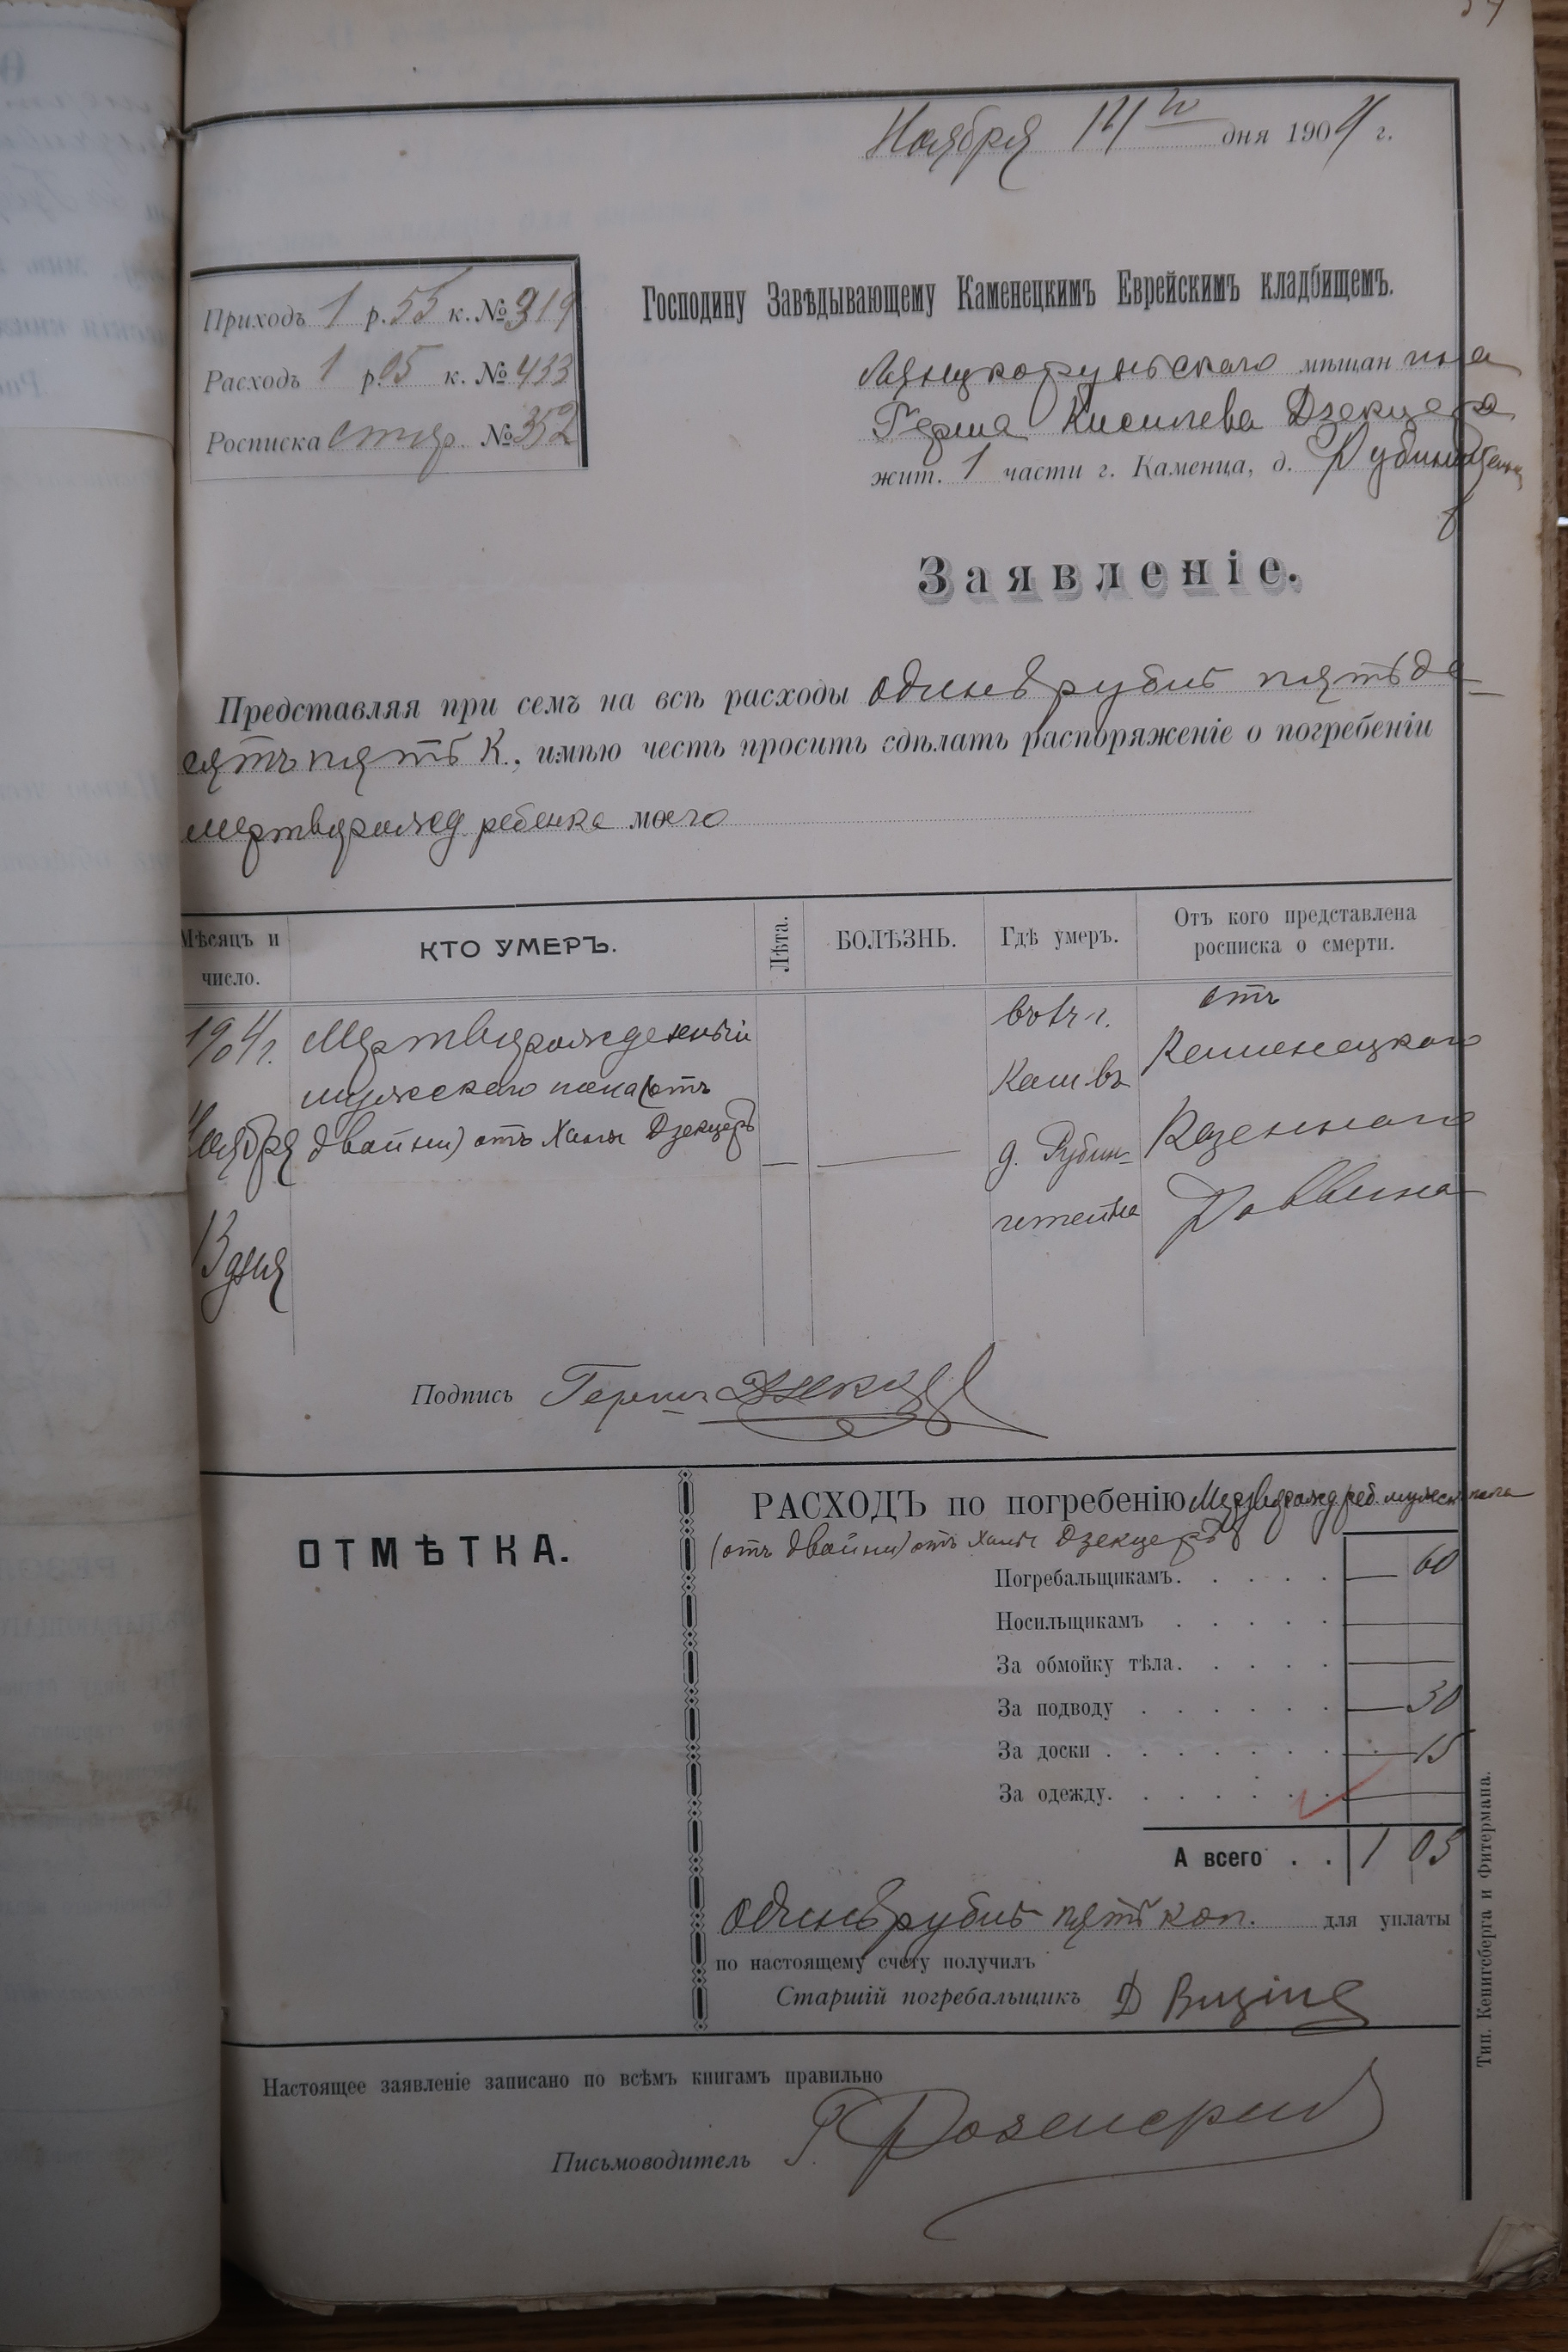 Ноября 14го дня 1904 г.
Приходъ 1 р. 55 к. № 319
Расходъ 1 р. 05 к. № 433
Росписка № 352
Господину Завѣдывающему Каменецкимъ Еврейскимъ кладбищемъ.
Лянцкоруньскаго мѣщанина
Герша Кисилева Дзекцера
жит. 1 части г. Каменца, д. Рубинштейна
Заявленіе.
Представляя при семъ на всѣ расходы одинъ рубль пятьде-
сятъ пять К., имѣю честь просить сдѣлать распоряженіе о погребеніи
мертворожд ребенка моего
Мѣсяцъ и число.
КТО УМЕРЪ.
Лѣта.
БОЛѢЗНЬ.
Гдѣ умеръ.
Отъ кого представлена росписка о смерти.
1904 г. Мертворожденный въ 1 ч г. отъ
мужескаго пола (отъ Кам въ Каменецкаго
Ноября двойни) отъ Ханы Дзекцеръ — — д. Рубин- Казеннаго
13 дня штейна Раввина
Подпись Гершъ Дзекцер
ОТМѢТКА.
РАСХОДЪ по погребенію Мертворожд реб. мужск пола
(отъ двойни) отъ Ханы Дзекцеръ
Погребальщикамъ. . . . . — 60
Носильщикамъ . . . . . —
За обмойку тѣла. . . . . —
За подводу . . . . . . — 30
За доски . . . . . . . — 15
За одежду. . . . . . . —
А всего . . 1 05
одинъ рубль пять коп. для уплаты
по настоящему счету получилъ
Старшій погребальщикъ
Настоящее заявленіе записано по всѣмъ книгамъ правильно
Письмоводитель
Тип. Кенигсберга и Фитермана.